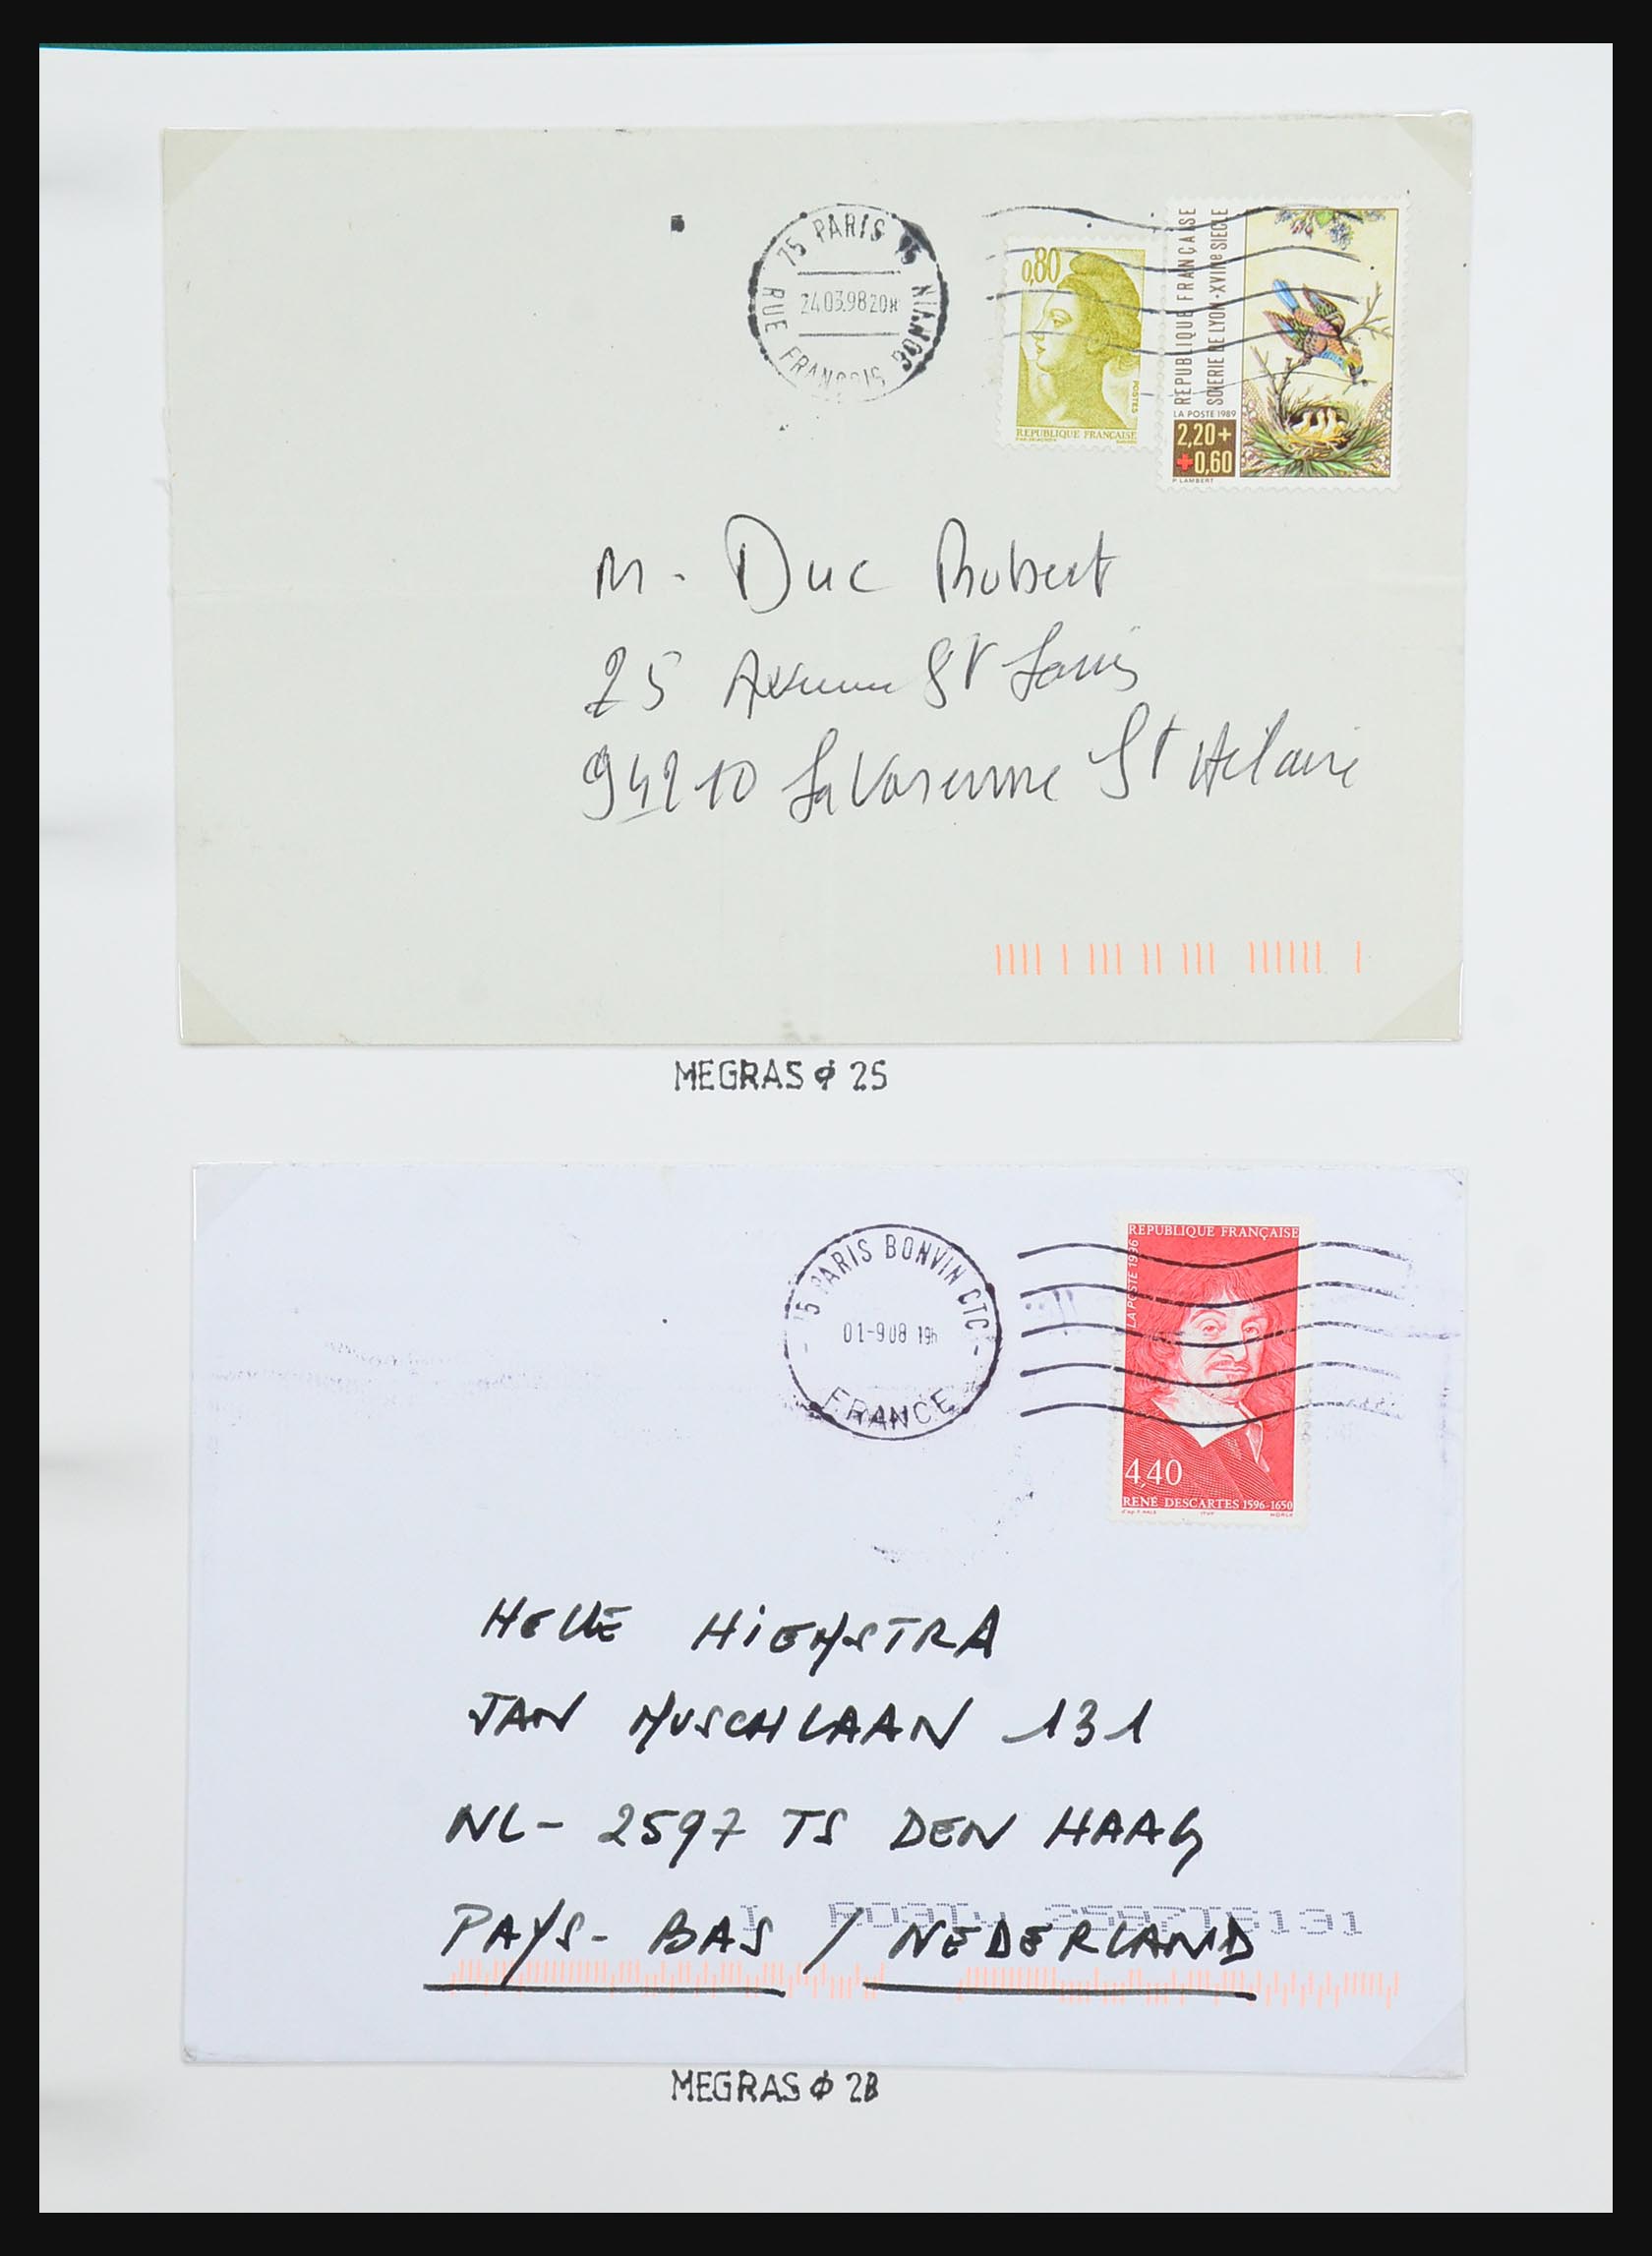 75 PARIS 15
24.03.98 20H
RUE FRANCOIS BONVIN
0,80
POSTES
REPUBLIQUE FRANÇAISE
REPUBLIQUE FRANÇAISE
SOIERIE DE LYON-XVIIIe SIECLE
LA POSTE 1989
2,20+
+0,60
P. LAMBERT
M. Duc Robert
25 Avenue St Louis
94210 La Varenne St Hilaire
MEGRAS ϕ 25
15 PARIS BONVIN CTC
01-9 08 19h
FRANCE
REPUBLIQUE FRANÇAISE
LA POSTE 1996
4,40
RENÉ DESCARTES 1596-1650
HELLE HIEMSTRA
JAN MUSCHLAAN 131
NL- 2597 TS DEN HAAG
2597TS131
PAYS-BAS / NEDERLAND
MEGRAS ϕ 28